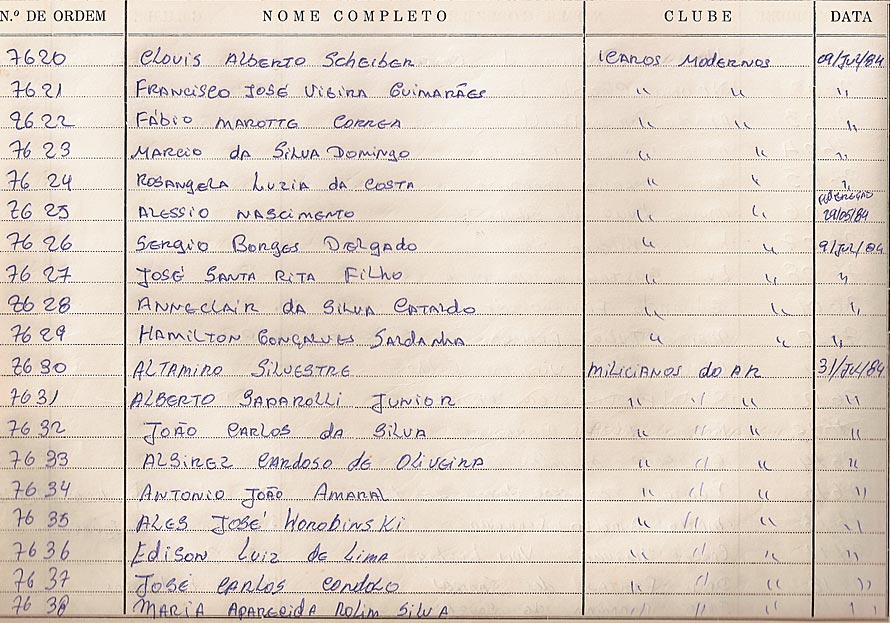 N.º DE ORDEM NOME COMPLETO CLUBE DATA
7620 Clovis Alberto Scheiber Icaros Modernos 09/Jul/84
7621 Francisco José Vieira Guimarães " " "
7622 Fábio Marotte Correa " " "
7623 Marcio da Silva Domingo " " "
7624 Rosangela Luzia da Costa " " "
7625 Alessio Nascimento " " 29/05/84
7626 Sergio Borges Delgado " " 9/Jul/84
7627 José Santa Rita Filho " " "
7628 Anneclair da Silva Cataldo " " "
7629 Hamilton Gonçalves Saldanha " " "
7630 Altamiro Silvestre Milicianos do Ar 31/Jul/84
7631 Alberto Saparolli Junior " " " "
7632 João Carlos da Silva " " " "
7633 Albirez Cardoso de Oliveira " " " "
7634 Antonio João Amaral " " " "
7635 Ales José Horobinski " " " "
7636 Edison Luiz de Lima " " " "
7637 José Carlos Condolo " " " "
7638 Maria Aparecida Rolim Silva " " " "